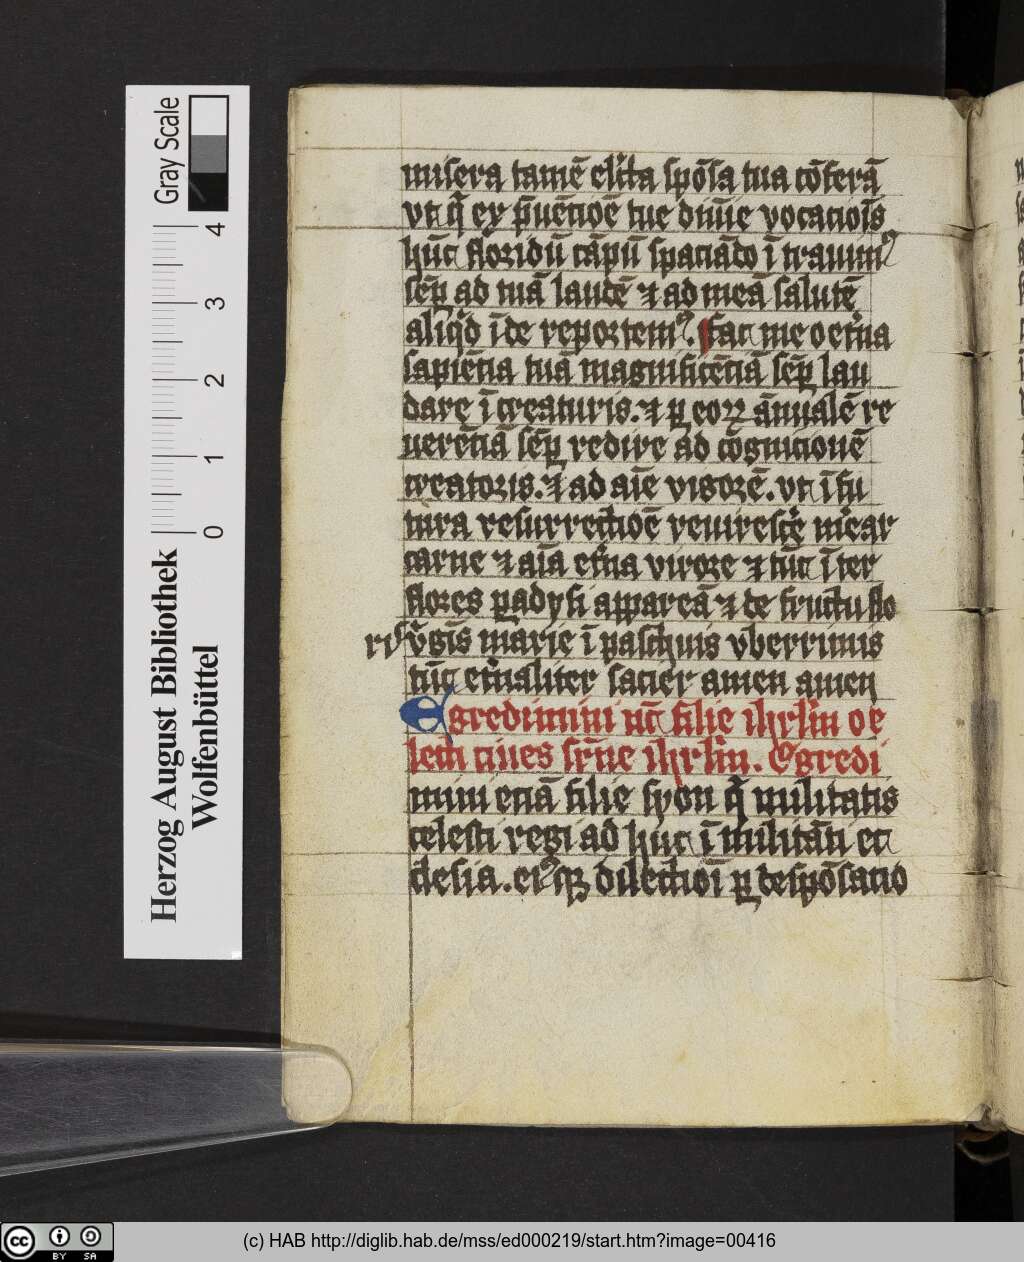 Gray Scale
4
3
2
1
0
Herzog August Bibliothek
Wolfenbüttel
misera tamē elc̄ta spōsa tua cōferā
vt q̄ ex p̄uēcōē tue diuīe vocacioīs
hūc floridū cāpū spaciādo ītrauimꝰ
sēp ad tuā laudē ⁊ ad meā salutē
aliqͥd īde reportemꝰ. Fac me o et̄na
sapiēcia tuā magnificēciā sēꝑ lau
dare ī creaturis. ⁊ ꝑ eoꝝ ānualē re
uerēciā sēꝑ redire ad cōgnicionē
creatoris. ⁊ ad aīe vigorē. vt ī fu
tura resurrectiōē reuirescē
carne ⁊ aīa et̄na virore ⁊ tūc īter
flores ꝑadysi appareā ⁊ de fructu flo
ris v̄gīs marie ī paschuis vberrimis
tūc et̄naliter sacier amen amen
Egredimini nūc filie ihrl̄m oē
lem ciues sr̄ne ihrl̄m. Egredi
mini eciā filie syon q̄ militatis
celesti regi ad huc ī militāti ec
clesia. eiꝰqꝫ dilectiōī ꝑ despōsacio
BY SA
(c) HAB http://diglib.hab.de/mss/ed000219/start.htm?image=00416